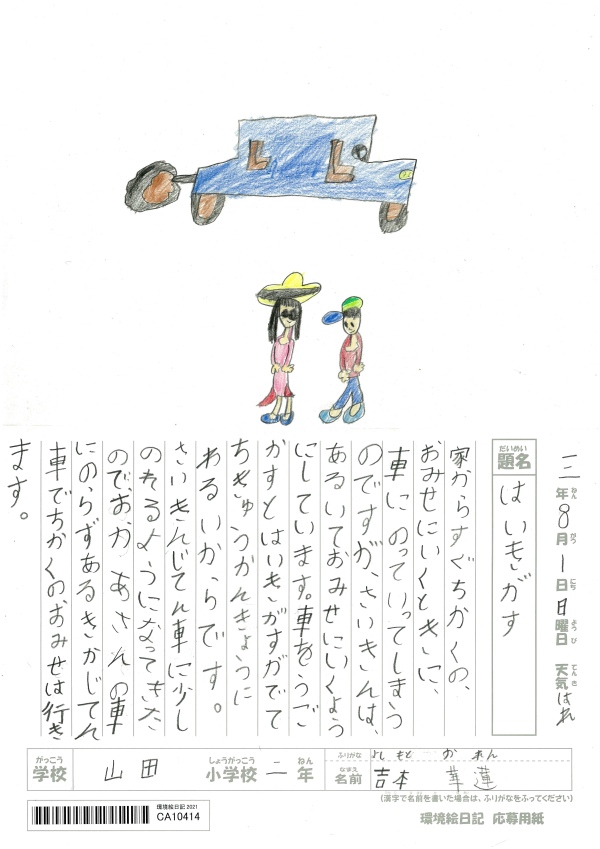 三年8月1日日曜日 天気はれ
題名 はいきがす
家からすぐちかくの、
おみせにいくときに、
車にのっていってしまう
のですが、さいきんは、
あるいておみせにいくよう
にしています。車をうご
かすとはいきがすがでて
ちきゅうかんきょうに
わるいからです。
さいきんじてん車に少し
のれるようになってきた
ので、おかあさんの車
にのらずあるきかじてん
車でちかくのおみせは行き
ます。
がっこう 学校 山田 しょうがっこう 小学校 二 ねん 年
ふりがな よしもと かれん
なまえ 名前 吉本 華蓮
(漢字で名前を書いた場合は、ふりがなをふってください)
環境絵日記 2021
CA10414
環境絵日記 応募用紙